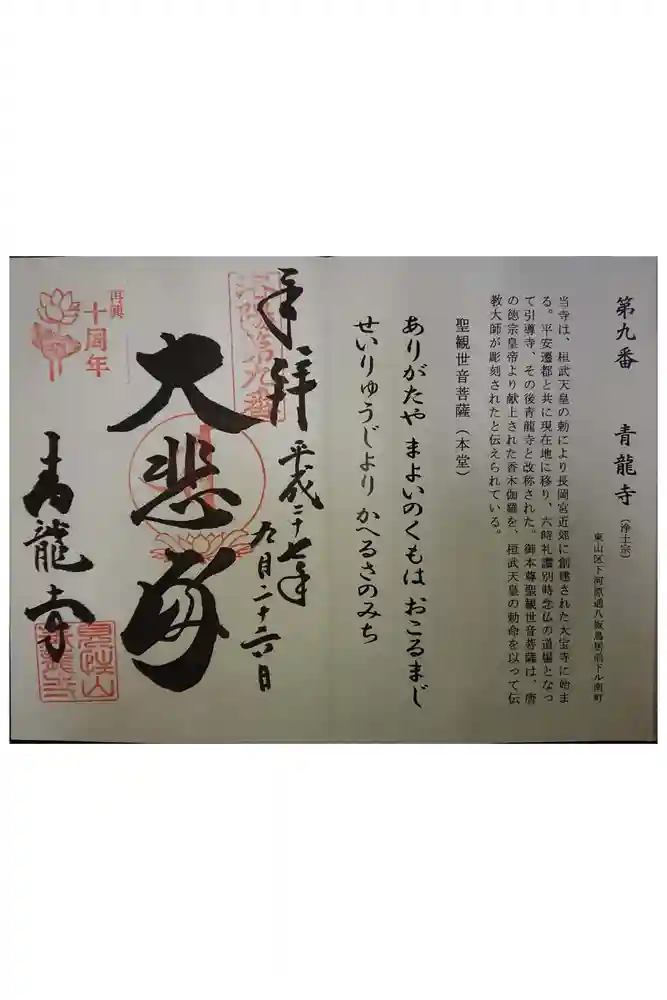 第九番 青龍寺(浄土宗)
東山区下河原通八坂鳥居前下ル南町
当寺は、桓武天皇の勅により長岡宮近郊に創建された大宝寺に始ま
る。平安遷都と共に現在地に移り、六時礼讃別時念仏の道場となっ
て引導寺、その後青龍寺と改称された。御本尊聖観世音菩薩は、唐
の徳宗皇帝より献上された香木伽羅を、桓武天皇の勅命を以って伝
教大師が彫刻されたと伝えられている。
聖観世音菩薩(本堂)
ありがたや まよいのくもは おこるまじ
せいりゅうじより かへるさのみち
奉拝 平成二十七年
九月二十六日
洛陽第九番
大悲殿
再興
十周年
青龍寺